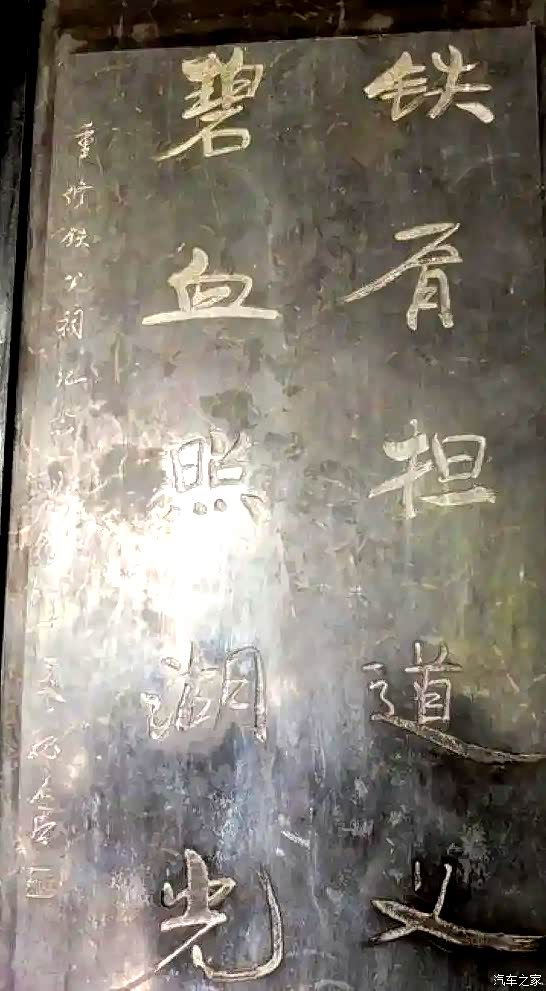 铁肩担道义
碧血照湖光
重修铁公祠纪念
汽车之家